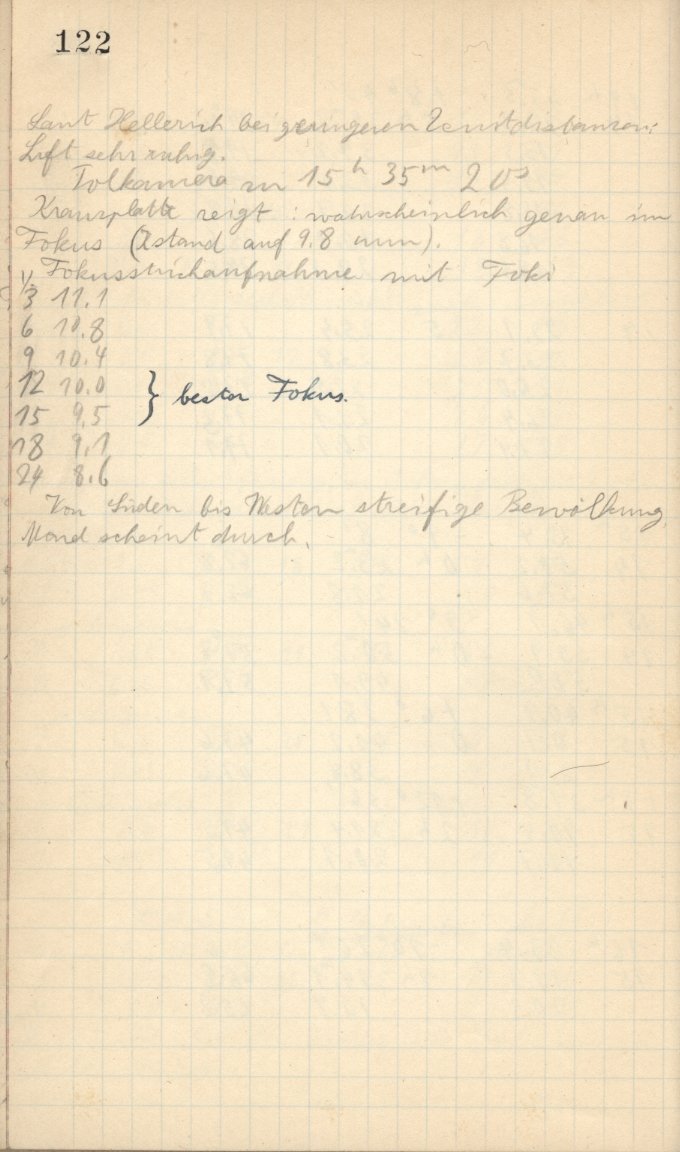 122
Laut Hellerich bei geringeren Zenitdistanzen:
Luft sehr ruhig.
Tolkamera zu 15h 35m 20s
Kranzplatte zeigt: wahrscheinlich genau im
Fokus (Zstand auf 9.8 mm).
Fokusstrichaufnahme mit Foki
3 11.1
6 10.8
9 10.4
12 10.0
15 9.5
} bester Fokus.
18 9.1
24 8.6
Von Süden bis Westen streifige Bewölkung,
Mond scheint durch.